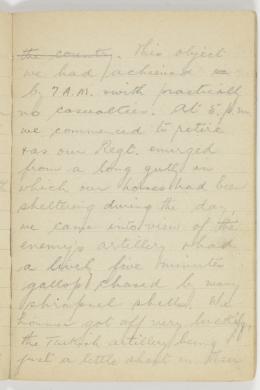 the country. This object
we had achieved
by 7 A.M. with practically
no casualties. At 5. p.m
we commenced to retire
& as our Regt. emerged
from a long gully in
which our horses had been
sheltering during the day,
we came into view of the
enemy's artillery & had
a lively five minutes
gallop chased by many
shrapnel shells. We
however got off very luckily,
the Turkish artillery being
just a little short in their